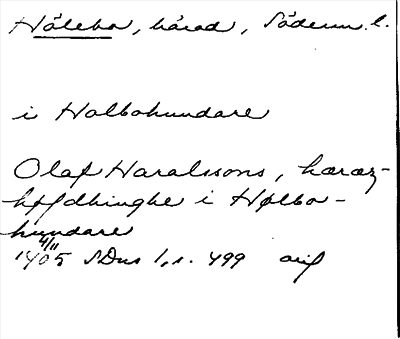 Hölebo, härad, Söderm. l.
i Holbohundare
Olaf Haralssons, hæræz-
høfdhinghe i Hølbo-
hundare
4/11
1405 SDns 1, s. 499 orig